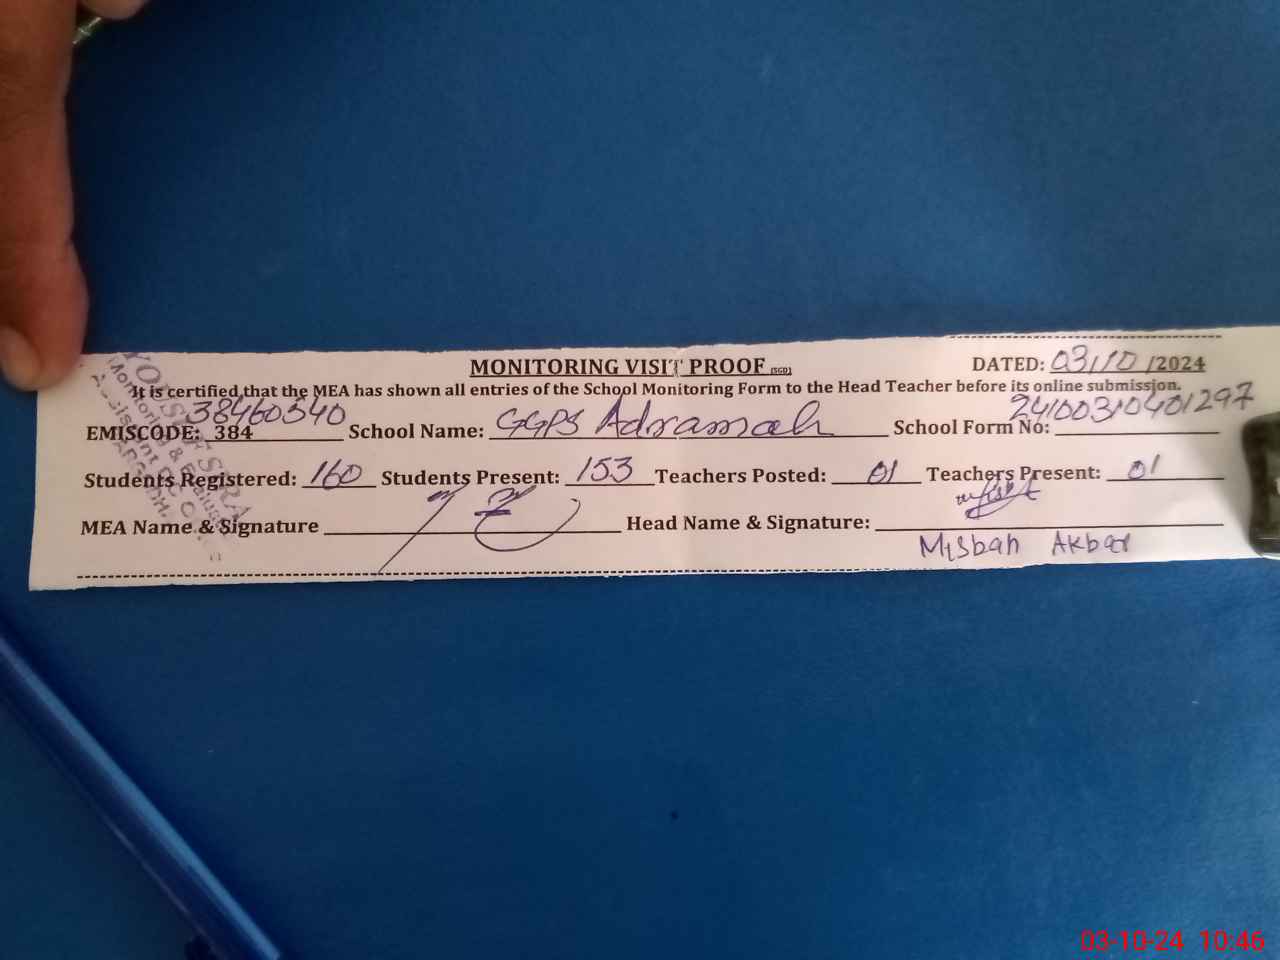 MONITORING VISIT PROOF (SGD) DATED: 03/10/2024
It is certified that the MEA has shown all entries of the School Monitoring Form to the Head Teacher before its online submission.
38460340 24100310401297
EMISCODE: 384 School Name: GGPS Adramah School Form No:
Students Registered: 160 Students Present: 153 Teachers Posted: 01 Teachers Present: 01
MEA Name & Signature Head Name & Signature:
Misbah Akbar
03-10-24 10:46